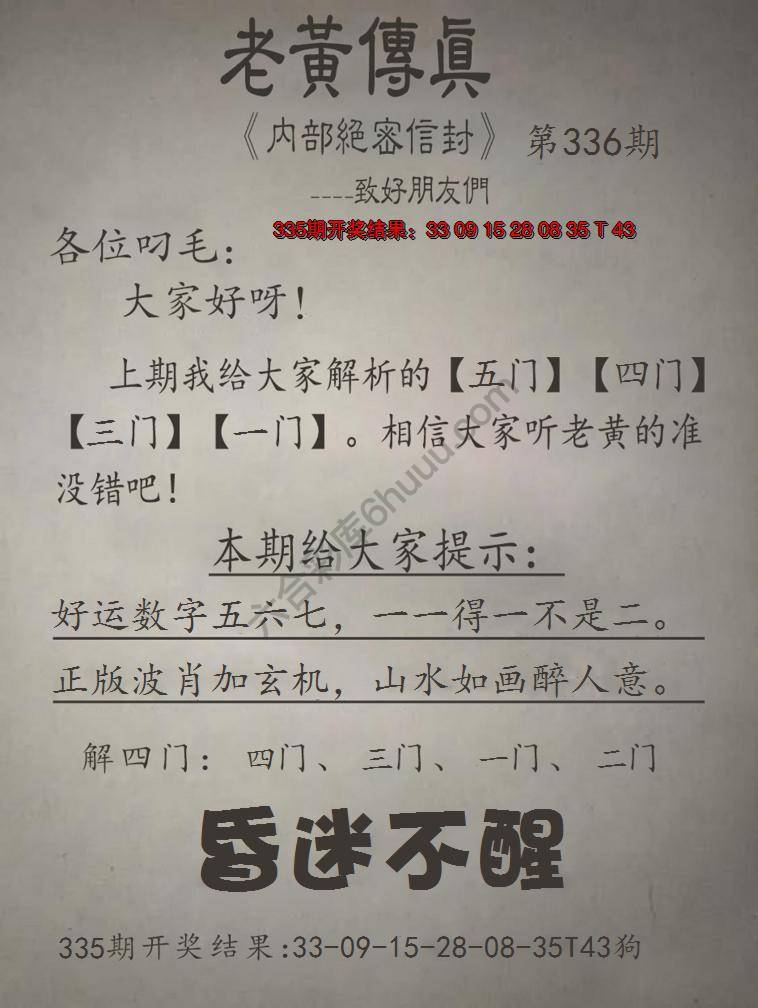 老黃傳眞
《内部絕密信封》 第336期
----致好朋友們
335期开奖结果：33 09 15 28 08 35 T 43
各位叼毛：
大家好呀！
上期我给大家解析的【五门】【四门】
【三门】【一门】。相信大家听老黄的准
没错吧！
本期给大家提示：
好运数字五六七，一一得一不是二。
正版波肖加玄机，山水如画醉人意。
解四门： 四门、 三门、 一门、 二门
昏迷不醒
335期开奖结果:33-09-15-28-08-35T43狗
六合彩库6huuu.com